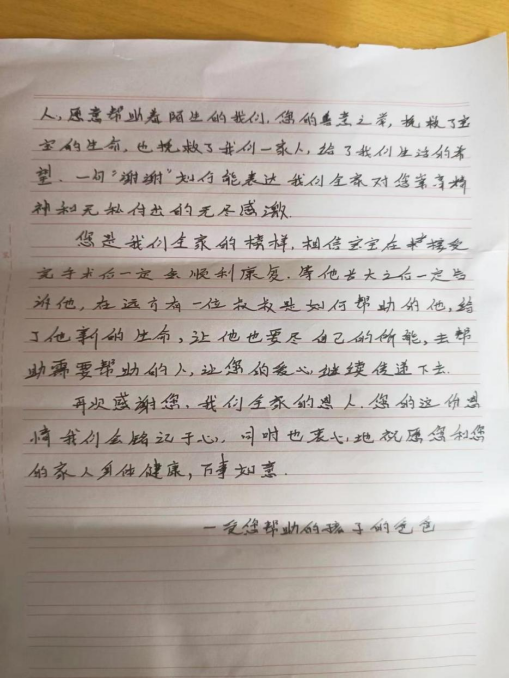 人，愿意帮助着陌生的我们，您的善意之举，挽救了宝
宝的生命，也挽救了我们一家人，给了我们生活的希
望．一句“谢谢”如何能表达我们全家对您崇高精
神和无私付出的无尽感激．
您是我们全家的榜样，相信宝宝在接受
完手术后一定会顺利康复．等他长大之后一定告
诉他，在远方有一位叔叔是如何帮助的他，给
了他新的生命，让他也要尽自己的所能，去帮
助需要帮助的人，让您的爱心继续传递下去．
再次感谢您，我们全家的恩人．您的这份恩
情我们会铭记于心，同时也衷心地祝愿您和您
的家人身体健康，万事如意．
—受您帮助的孩子的爸爸